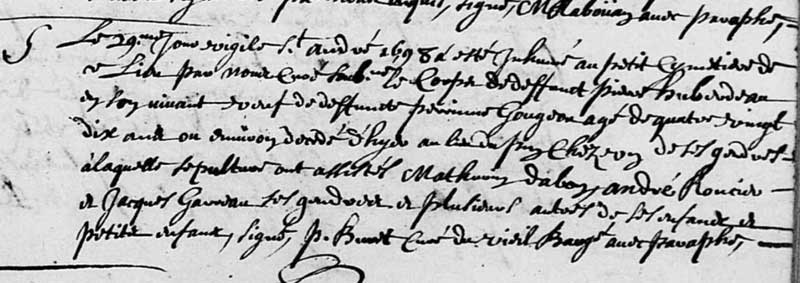 signé, M Rabouan avec paraphe,
S Le 29.me jour vigile s.t andré 1698 a esté Inhumé au petit Cymetiere de
ce Lieu par nous Curé soub.né le Corps de deffunct pierre huberdeau
en son vivant veuf de deffuncte perrinne Gougeon agé de quatre vingt
dix ans ou environ decedé d'hyer au lieu du puy Chez un de ses gendres
à laquelle sepulture ont assistés Mathurin dabon, andré Roncier
et Jacques Garreau ses gendres et plusieurs autres de ses enfans et
petits enfans, signé, P. Buret Curé du vieil Baugé avec paraphe,